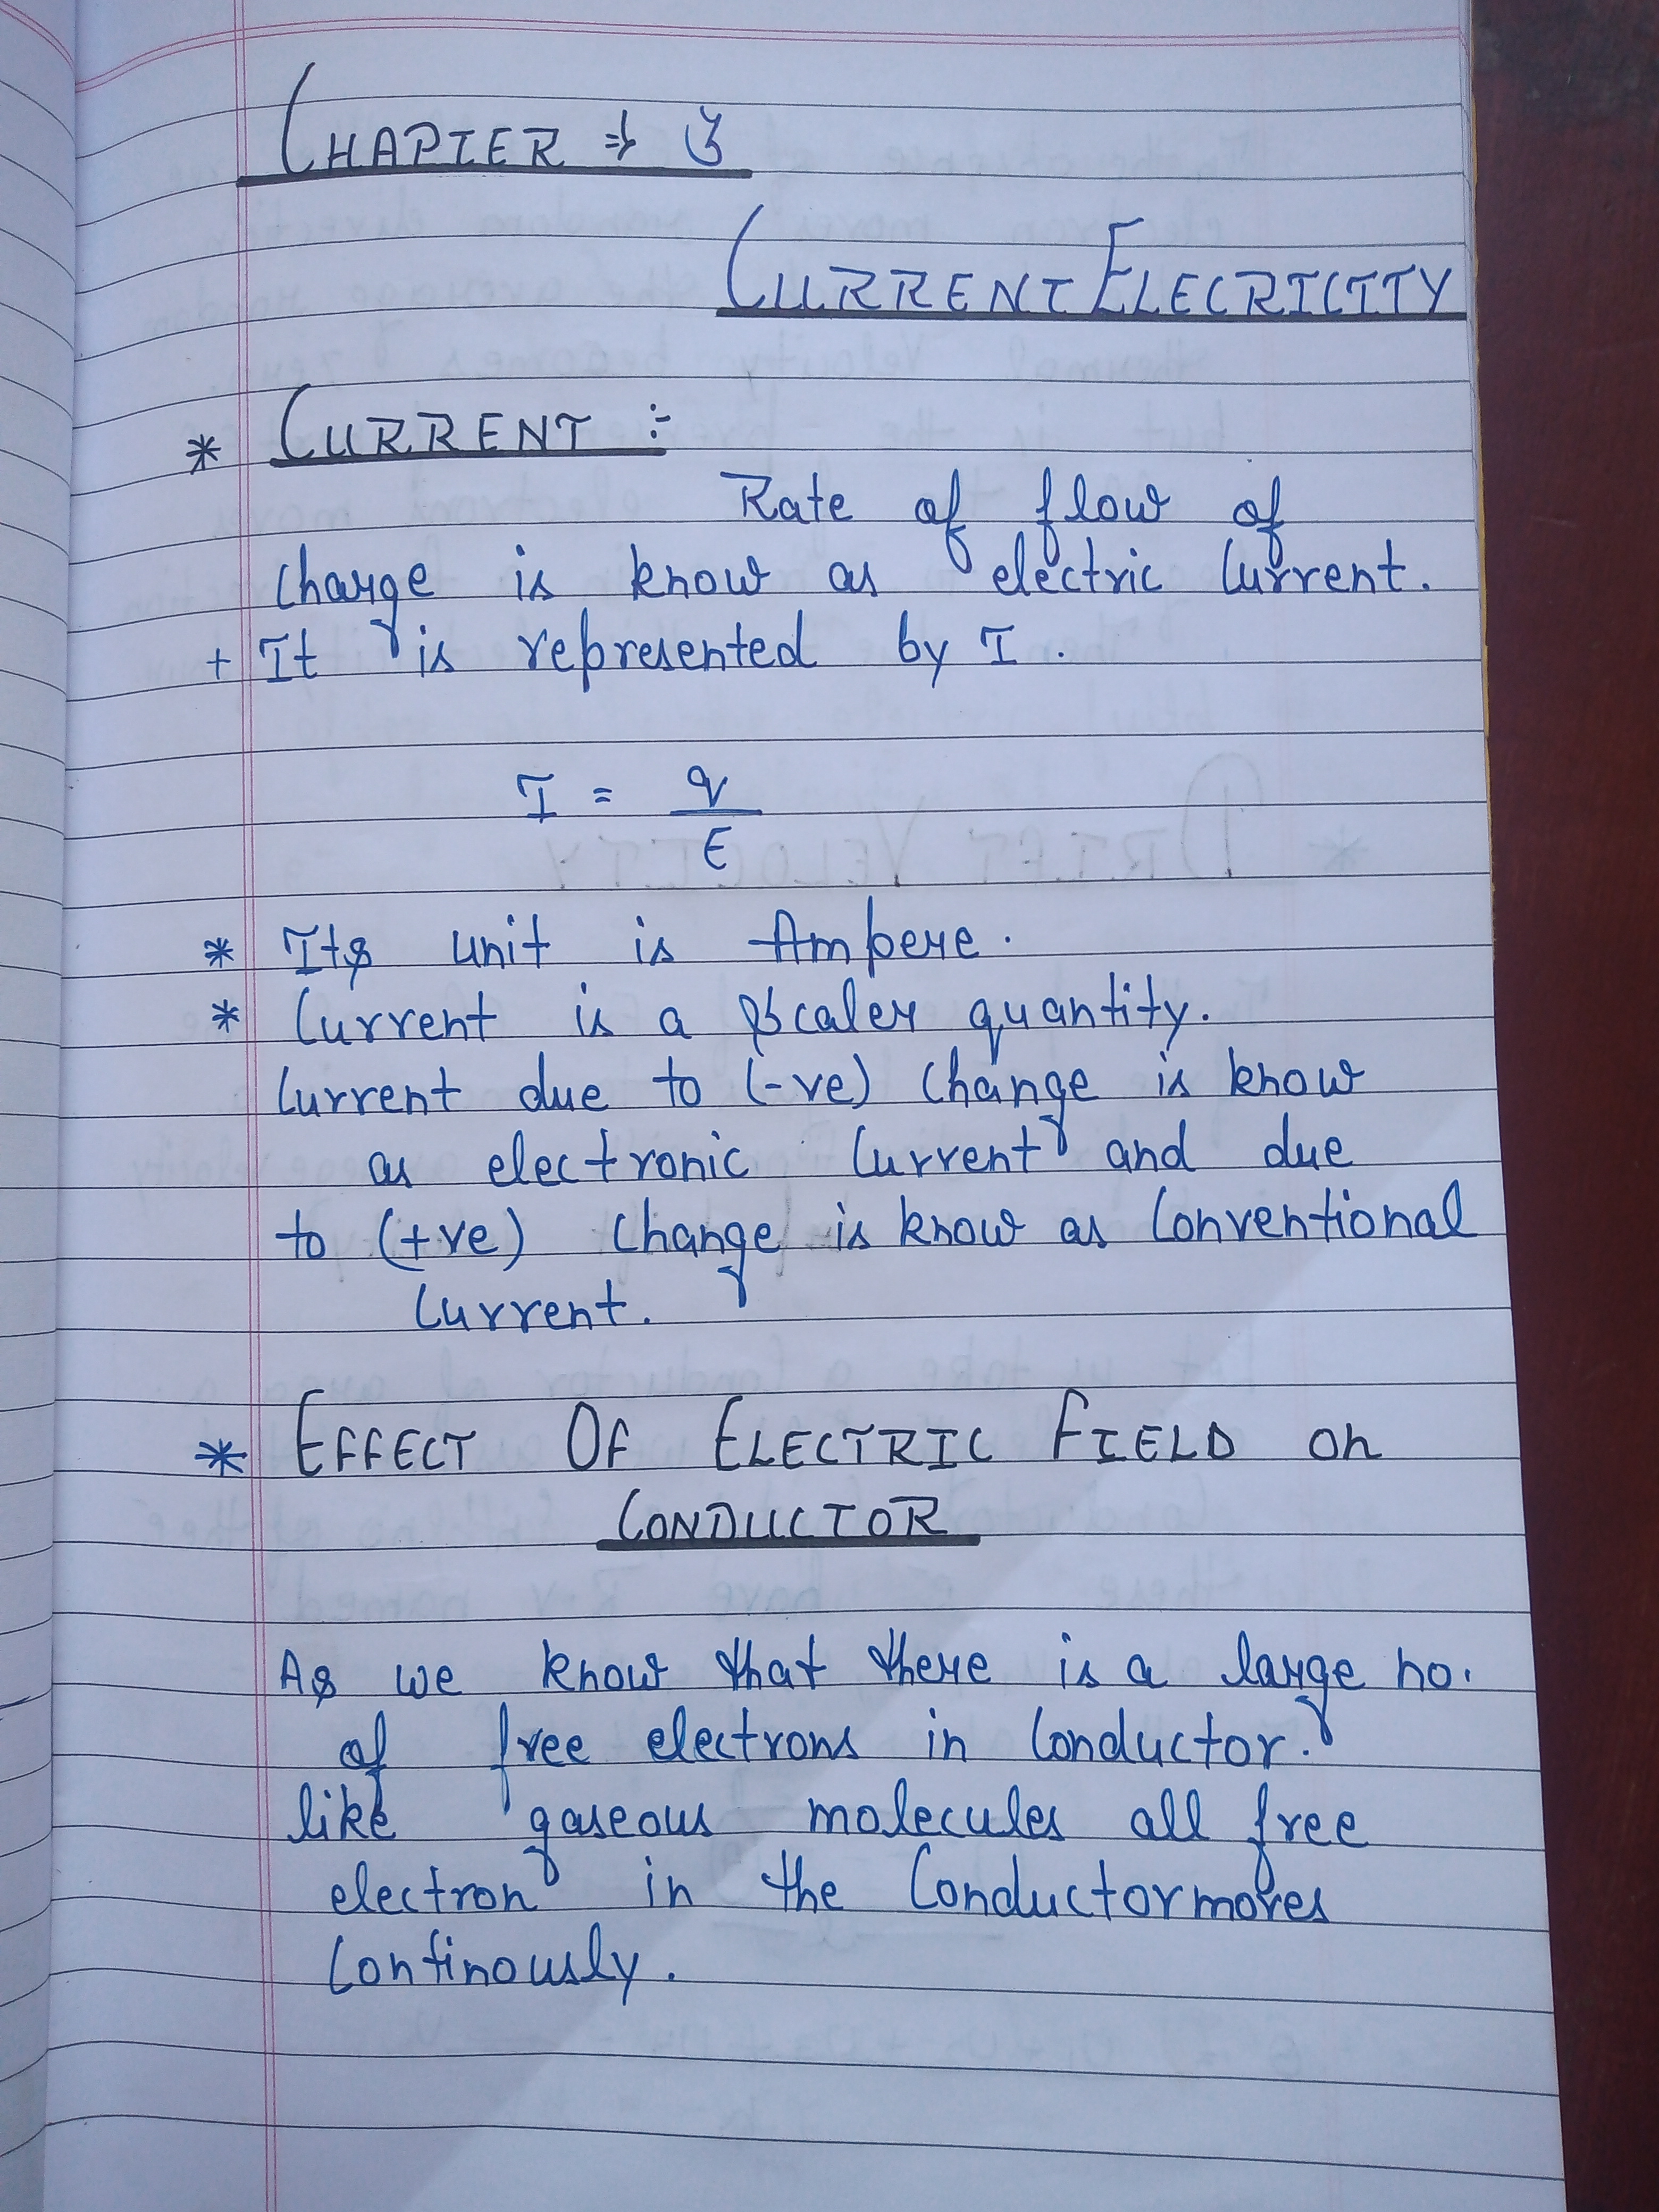 CHAPTER ⇒ 3
CURRENT ELECRICITY
* CURRENT :-
Rate of flow of
charge is know as electric Current.
+ It is represented by I.
I = q
t
* Its unit is Ampere.
* Current is a Scaler quantity.
Current due to (-ve) Change is know
as electronic Current and due
to (+ve) Change is know as Conventional
Current.
* EFFECT OF ELECTRIC FIELD On
CONDUCTOR
As we know that there is a large no.
of free electrons in Conductor.
like gaseous molecules all free
electron in the Conductor moves
Continously.